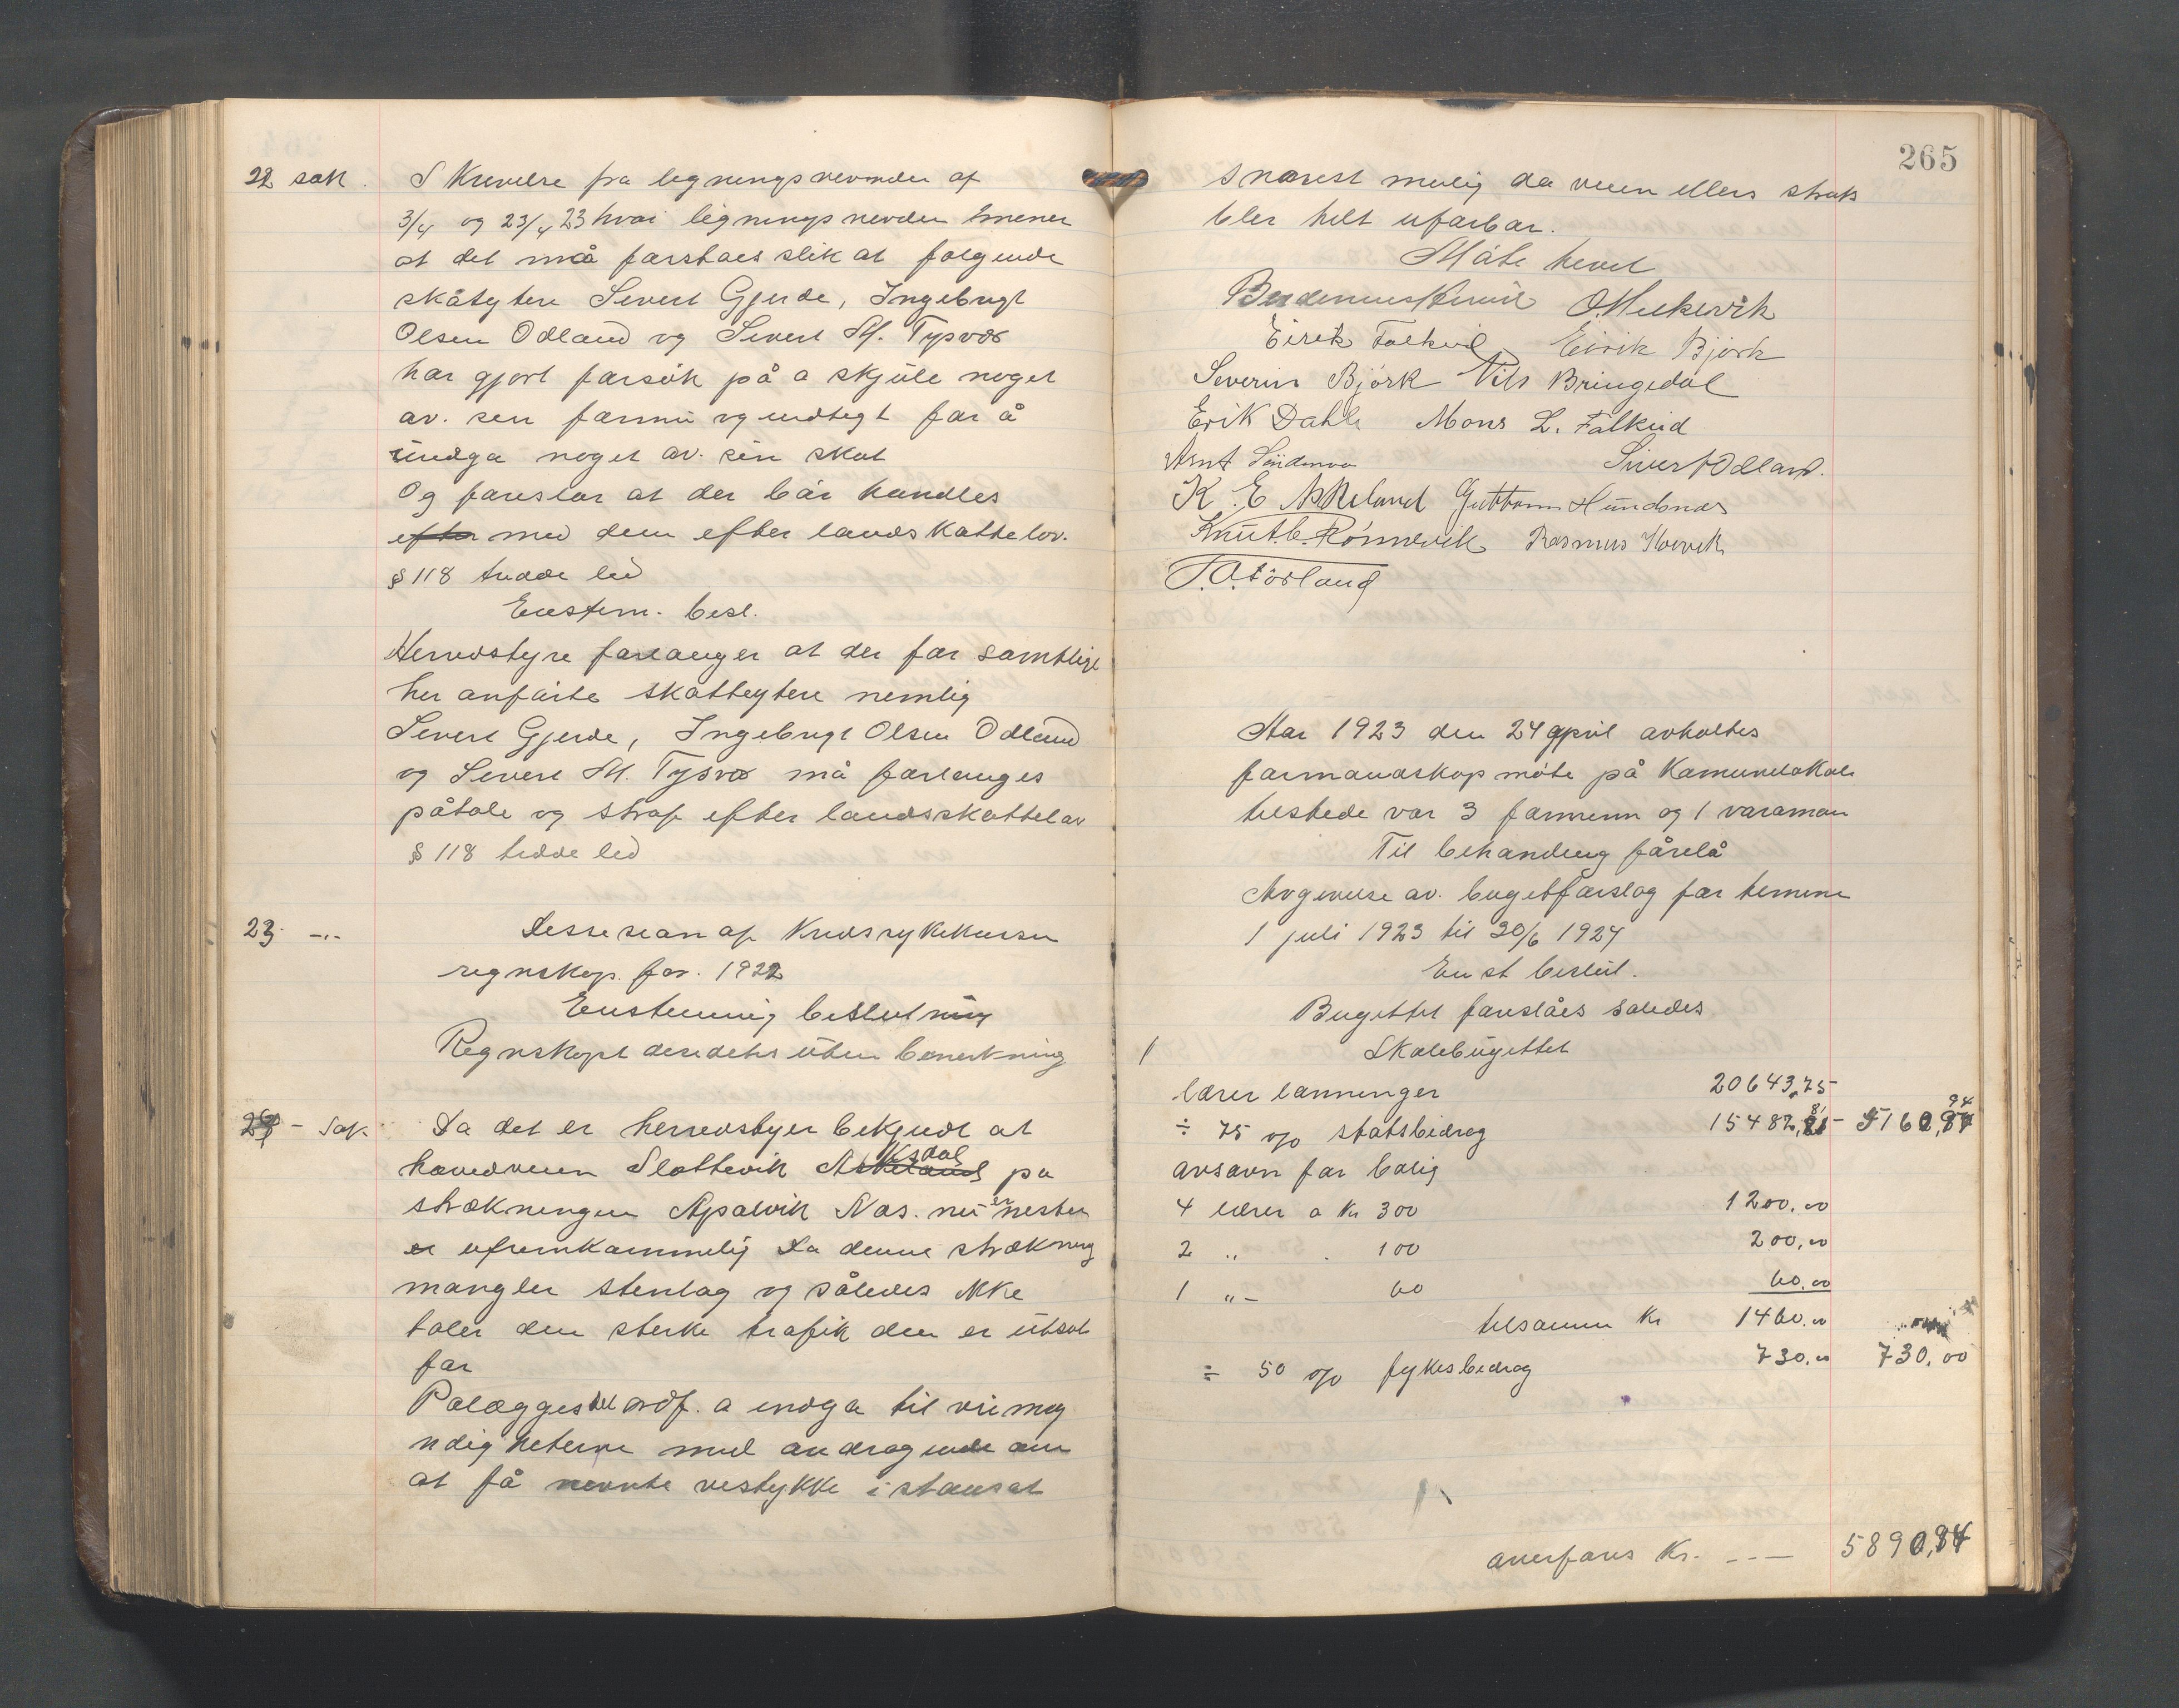 22 sak. Skrivelse fra legningsnevnden af
3/4 og 23/4 23 hvor ligningsnevden mener
at det må forstaes slik at følgende
skåtytere Sivert Gjerde, Ingebrigt
Olsen Odland og Sivert M. Tysvær
har gjort forsök på a skjule noget
av. sen formu og indtegt for å
undga noget av. sin skat
Og foreslar at der bör handles
efter med dem efter landskattelov.
§ 118 tredde led
Enstem. besl.
Herredstyre forlanger at der for samtlige
her anförte skatteytere nemlig
Sivert Gjerde, Ingebrigt Olsen Odland
og Sivert M. Tysvær må forlanges
påtale og straf efter landsskattelov
§ 118 tredde led
23 -"- Desesean af Kredssykekassen
regnskap. for. 1922
Enstemmig beslutning
Regnskapet desedeter uten bemerkning
24 - Sak Da det er herredstyer bekjendt at
hovedveien Slottevik Askeland Aksdal pa
strækningen Apalvik Nas. nu er nesten
er ufremkommelig Da denne strækning
mangler stenlag og således ikke
toler den sterke trafik den er utsat
for
Palægges del ordf. a indga til veimag
ndigheterne med andragende om
at få nevnte vestykke i stansat
265
snarest mulig da veien ellers straks
bler helt ufarbar.
Möte hevet
O. Mukesvik
Eirik Falkeid Eirik Björk
Severin Björk Nils Bringedal
Erik Dahle Mons L. Falkeid
Arnt Söndenaa Sivert Odland.
K. E. Askeland Guttorm Hundsnes
Knut C. Rönnevik Rasmus Kvevik
T. O. Förland
Aar 1923 den 24 april avholtes
formandskap möte på Kamunelokale
tilstede var 3 formenn og 1 varaman
Til behandling fårelå
Avgivelse av. bugetforslag for termine
1 juli 1923 til 30/6 1924
Enst beslut.
Bugettet foreslåes saledes
1 Skolebugettet
lærer lønninger 20643,75
÷ 75 o/o statsbidrag 15482,81 - 5160,94
avsavn for bolig
4 lærer a Kr 300 1200.00
2 " . 100 200,00
1 "- 60 60.00
tilsamm Kr 1460.00
÷ 50 o/o fylkesbidrag 730.00 730,00
overføres Kr. --- 5890,94